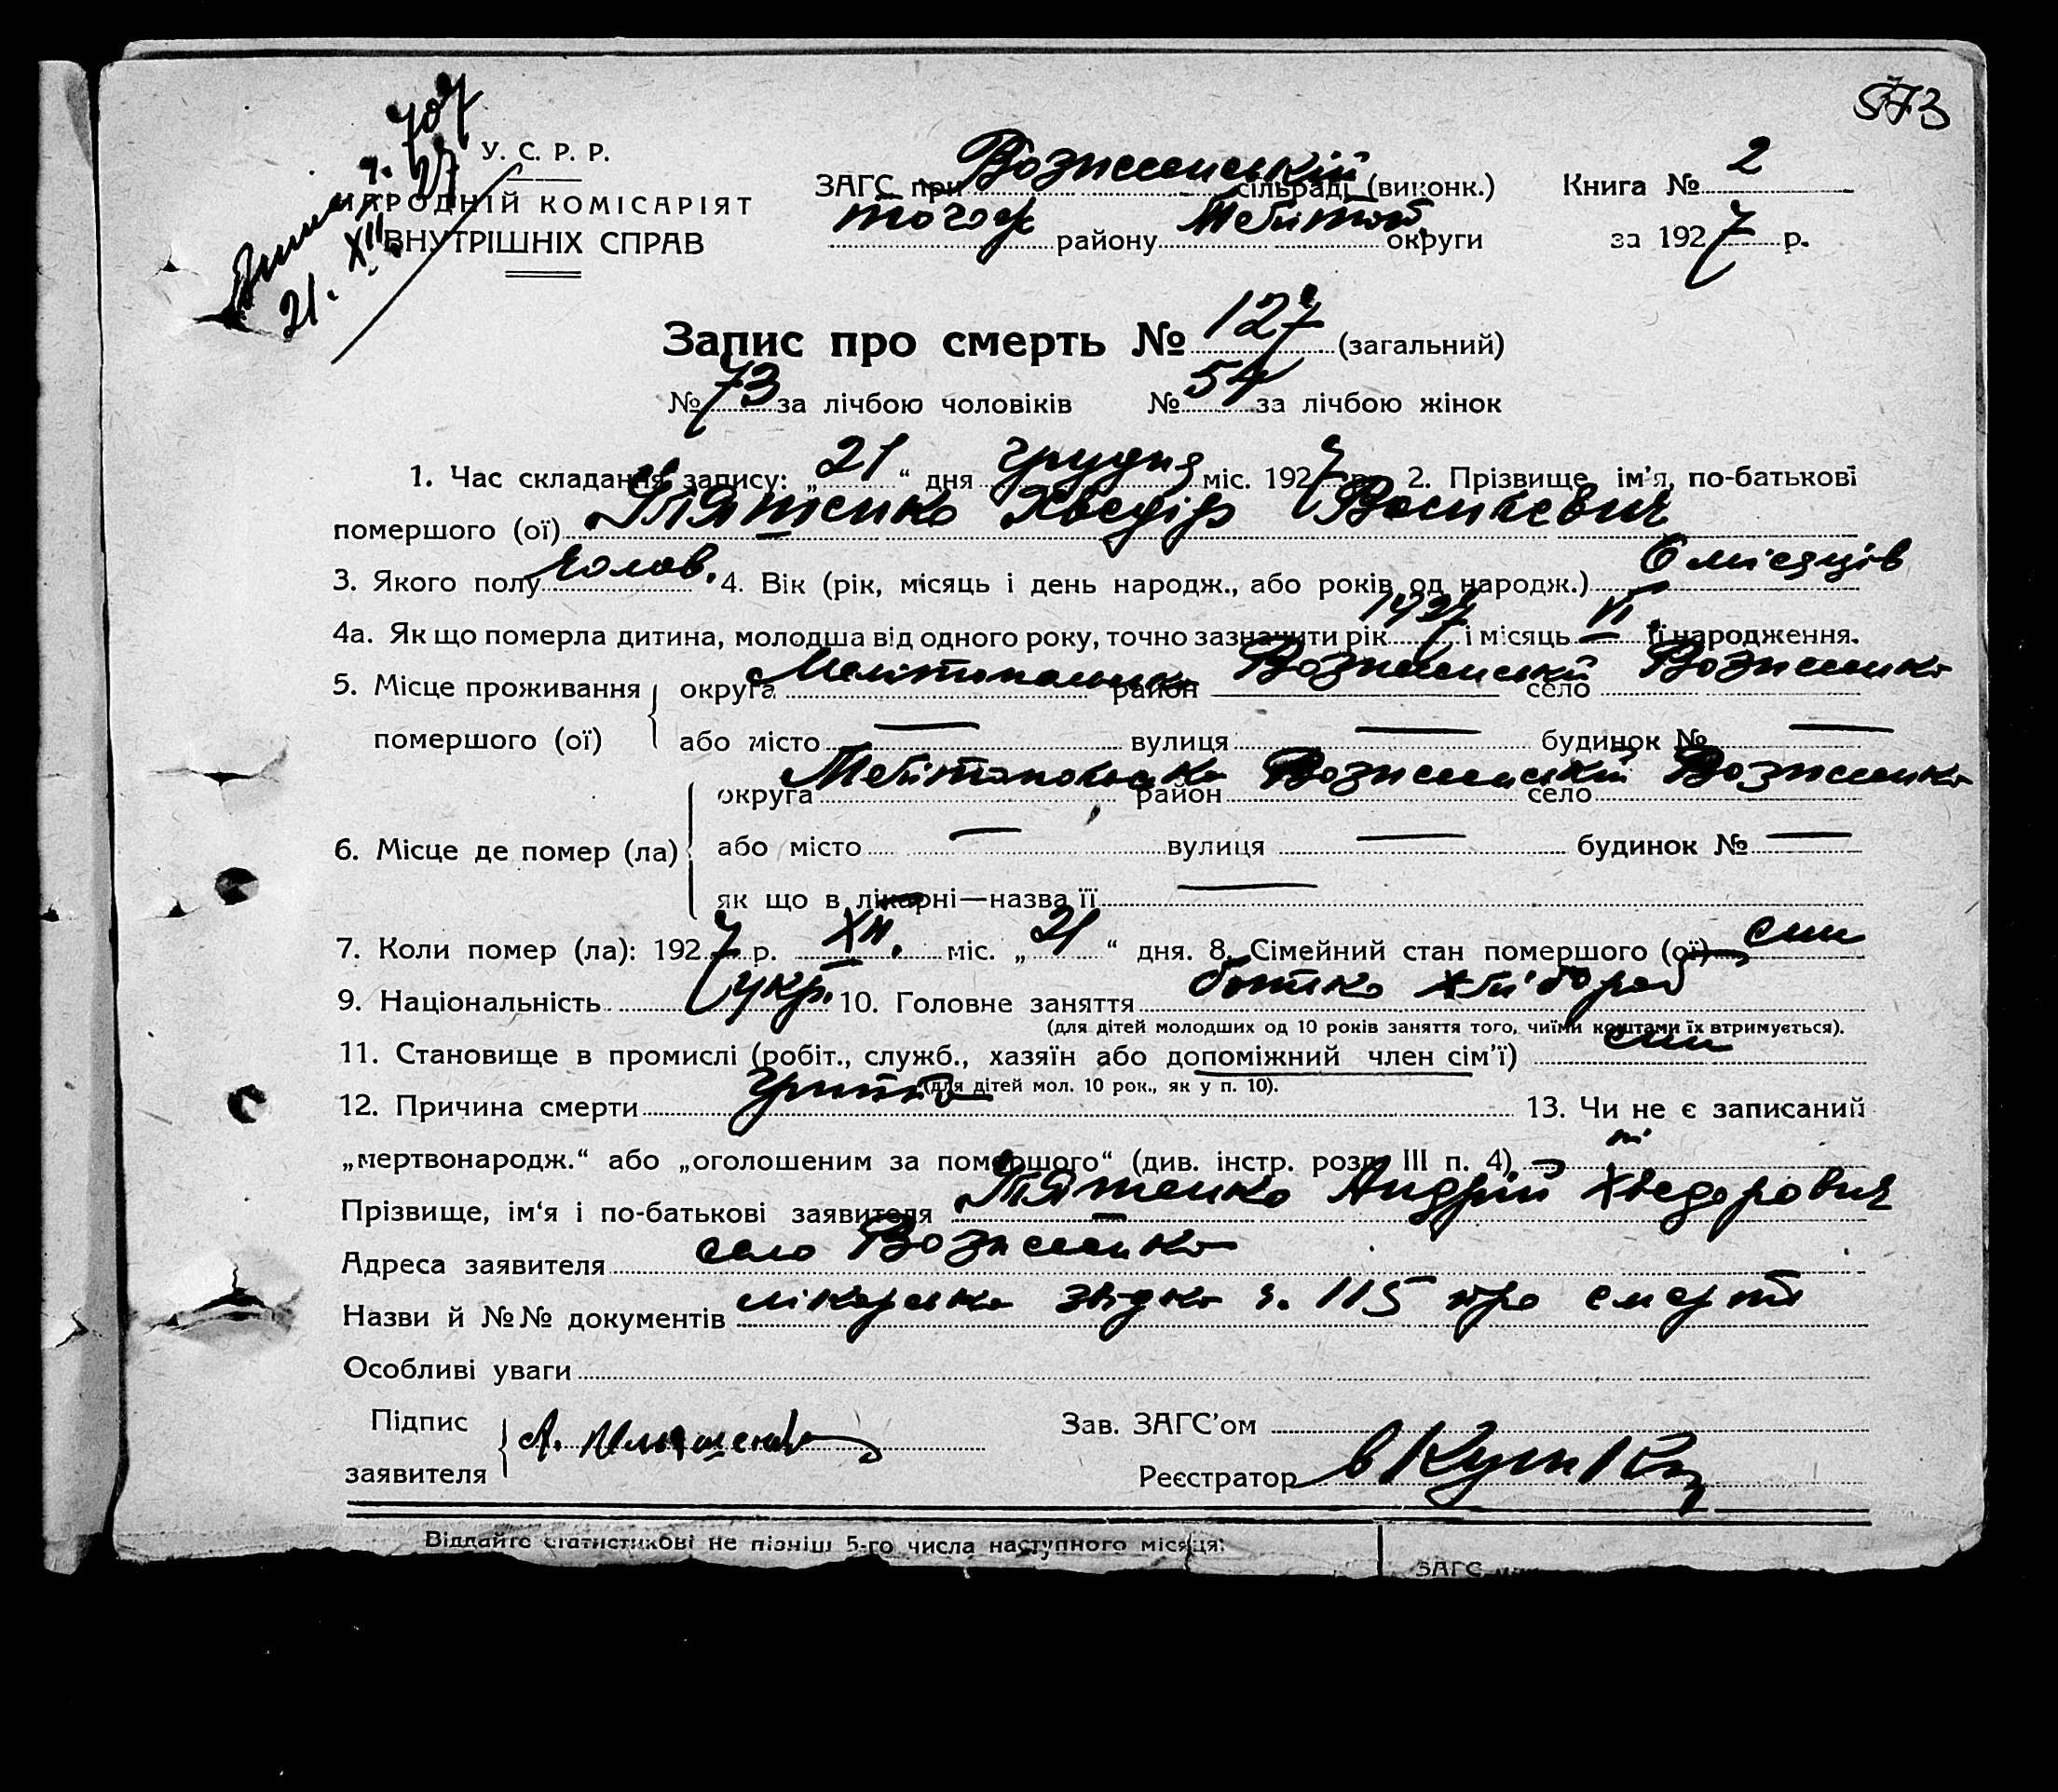 573
ч. 707
27
21. XII
У. С. Р. Р.
НАРОДНІЙ КОМІСАРІЯТ
ВНУТРІШНІХ СПРАВ
ЗАГС при Вознесенській сільраді (виконк.) Книга № 2
того ж району Меліто п. округи за 1927 р.
Запис про смерть № 127 (загальний)
№ 73 за лічбою чоловіків № 54 за лічбою жінок
1. Час складання запису: „21“ дня грудня міс. 1927 р. 2. Прізвище, ім'я, по-батькові
помершого (ої) Хведір Васильєвич
3. Якого полу чолов. 4. Вік (рік, місяць і день народж., або років од народж.) 6 місяців
4а. Як що померла дитина, молодша від одного року, точно зазначити рік 1927 і місяць VI її народження.
5. Місце проживання округа Мелітопольська район Вознесенській село Вознесенка
помершого (ої) або місто — вулиця — будинок № —
округа Мелітопольська район Вознесенській село Вознесенка
6. Місце де помер (ла) або місто — вулиця — будинок № —
як що в лікарні—назва її —
7. Коли помер (ла): 1927 р. XII. міс. „21“ дня. 8. Сімейний стан помершого (ої) син
9. Національність укр. 10. Головне заняття батько хлібороб
(для дітей молодших од 10 років заняття того, чиїми коштами їх втримується).
11. Становище в промислі (робіт., служб., хазяїн або допоміжний член сім'ї) син
(для дітей мол. 10 рок., як у п. 10).
12. Причина смерти грипп 13. Чи не є записаний
„мертвонародж.“ або „оголошеним за помершого“ (див. інстр. розд. III п. 4) — ні
Прізвище, ім'я і по-батькові заявителя Андрій Хведорович
Адреса заявителя село Вознесенка
Назви й №№ документів лікарська звідка ч. 115 про смерть
Особливі уваги
Підпис
заявителя А.
Зав. ЗАГС'ом
Реєстратор
Віддайте статистикові не пізніш 5-го числа наступного місяця:
ЗАГС